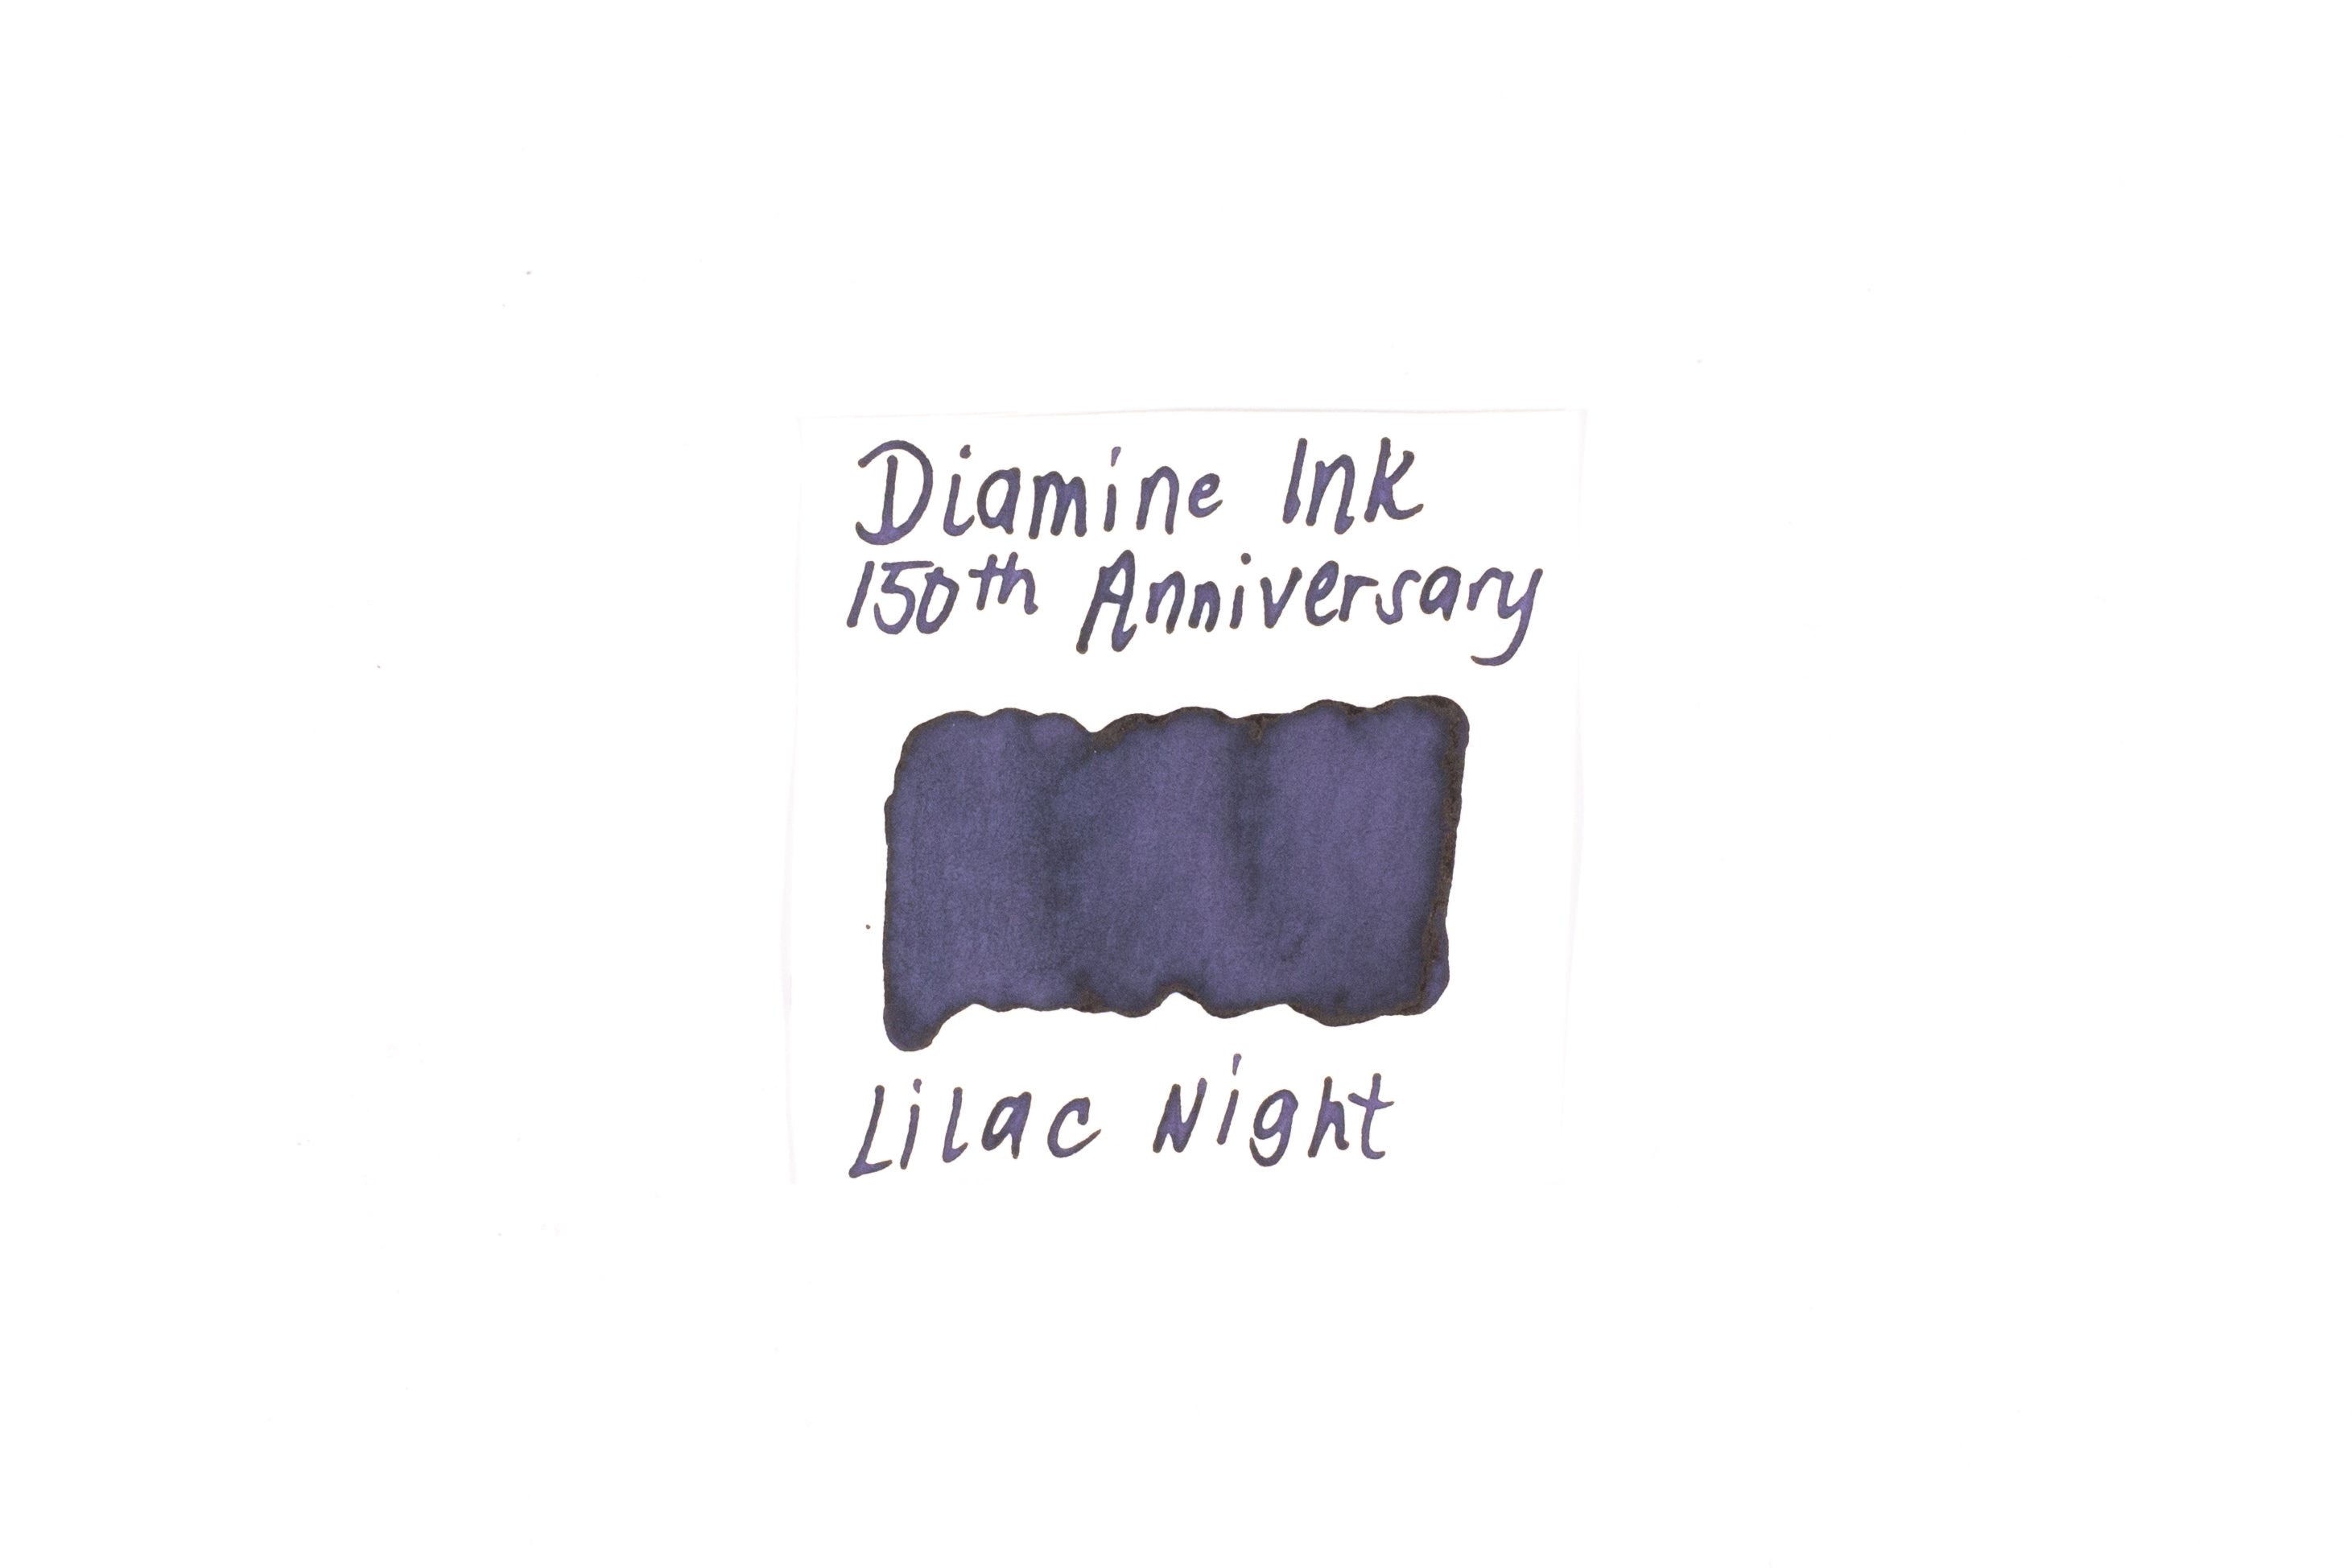 Diamine Ink
150th Anniversary
Lilac Night